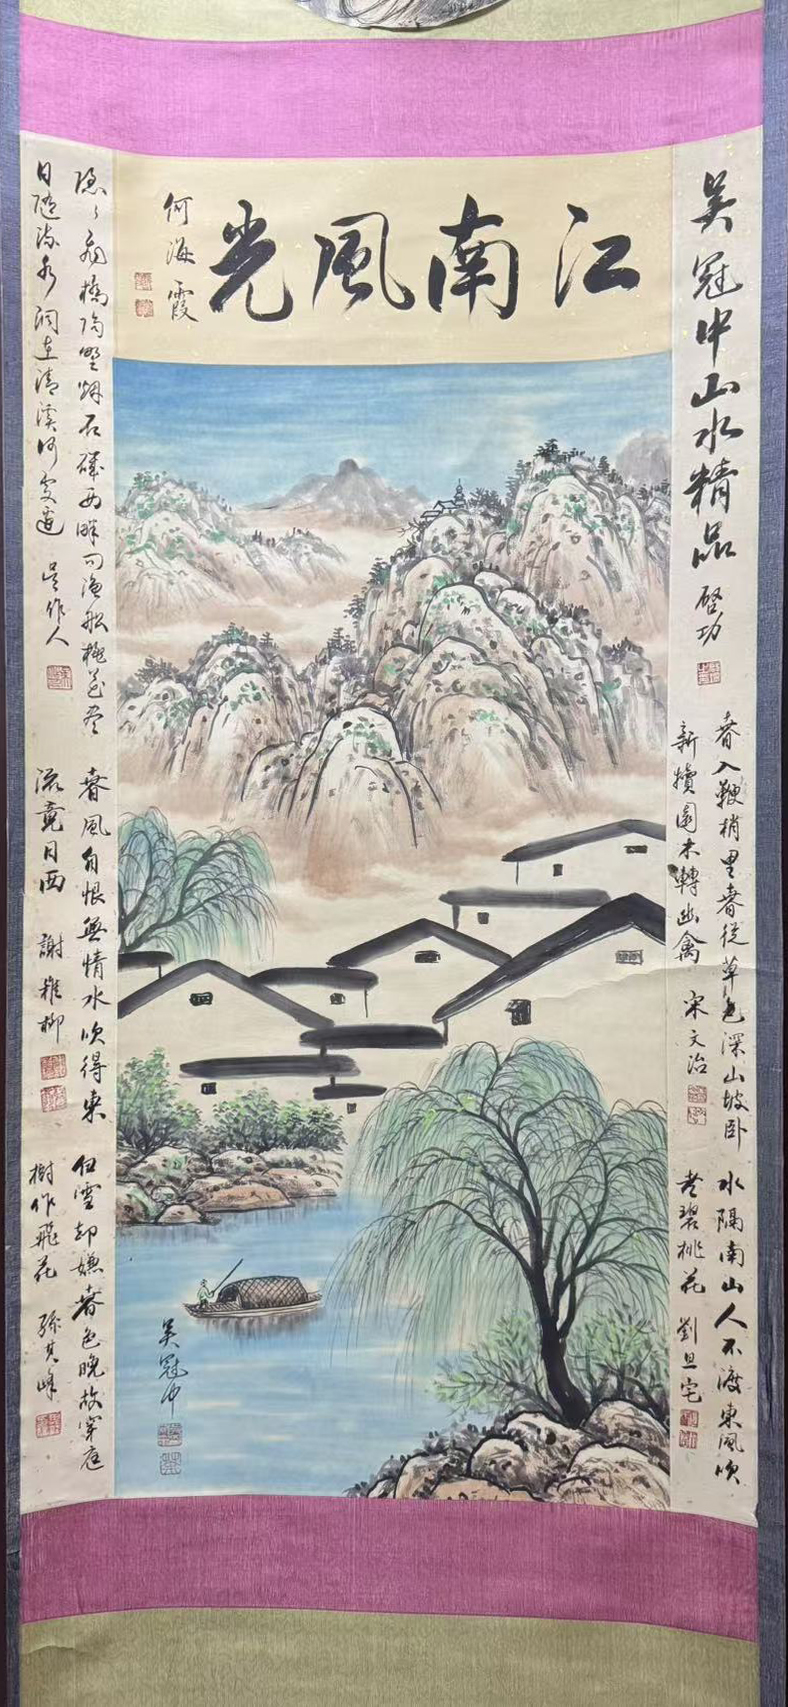 江南風光
何海霞
吴冠中山水精品
啓功
春入鞭梢里春從草色深山坡卧
新犢園木轉幽禽
宋文治
水隔南山人不渡東風吹
老碧桃花
劉旦宅
隱〻飛橋隔野烟石磯西畔问渔船桃花尽
日随流水洞在清溪何处边
吴作人
春風自恨無情水吹得東
流竟日西
謝稚柳
白雪却嫌春色晚故穿庭
樹作飛花
孫其峰
吴冠中